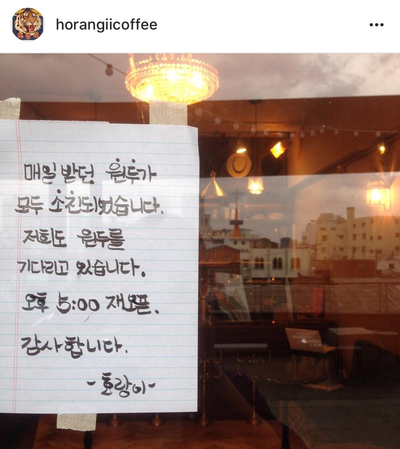 horangiicoffee
매일 받던 원두가
모두 소진되었습니다.
저희도 원두를
기다리고 있습니다.
오후 5:00 재오픈.
감사합니다.
-호랑이-